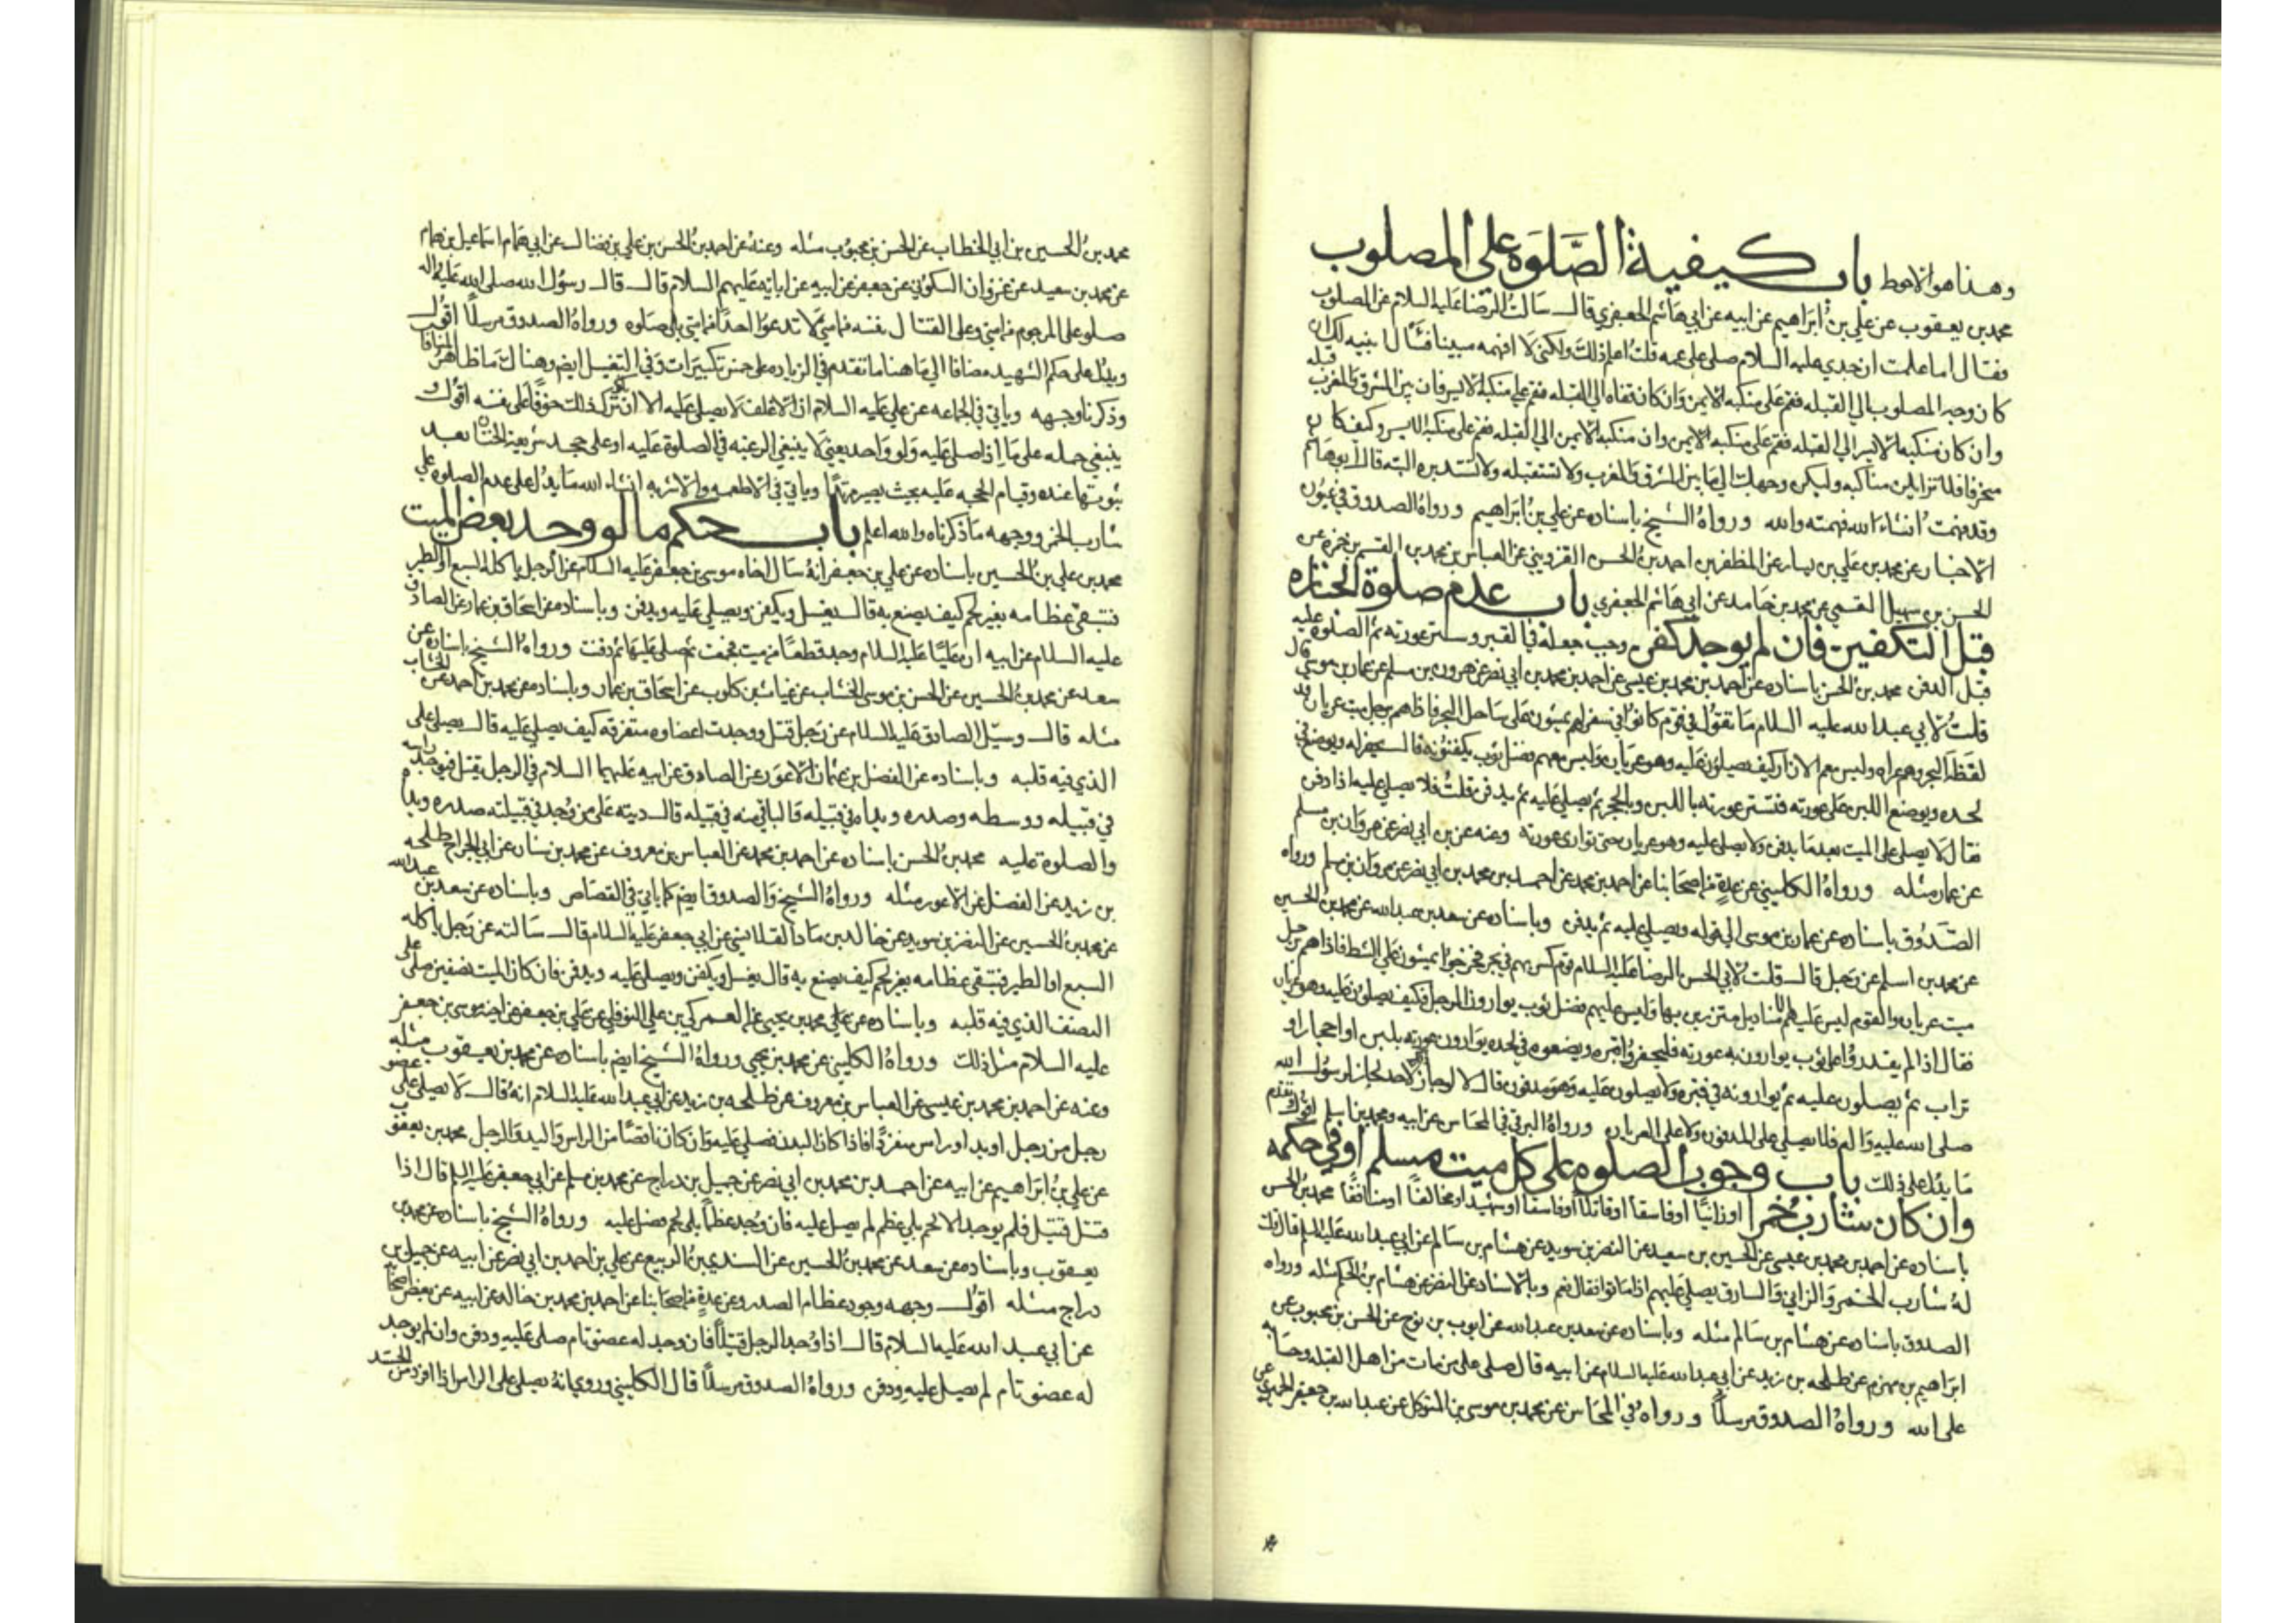 وهذا هو الاحوط باب كيفية الصلوة على المصلوب
محمد بن يعقوب عن علي بن ابراهيم عن ابيه عن ابي هاشم الجعفري قال سالت الرضا عليه السلام عن المصلوب
فقال اما علمت ان جدي عليه السلام صلى على عمه قلت اعلم ذلك ولكني لا افهمه مبينا فقال ابينه لك ان
كان وجه المصلوب الى القبلة فقم على منكبه الايمن وان كان قفاه الى القبله فقم على منكبه الايسر فان بين المشرق والمغرب قبلة
وان كان منكبه الايسر الى القبله فقم على منكبه الايمن وان منكبه الايمن الى القبله فقم على منكبه الايسر وكيف كان
منحرفا فلا تزايلن مناكبه وليكن وجهك الى ما بين المشرق والمغرب ولا تستقبله ولا تستدبره البته قال ابو هاشم
وقد فهمت انشاء الله فهمته والله ورواه الشيخ باسناده عن علي بن ابراهيم ورواه الصدوق في عيون
الاخبار عن محمد بن علي بن بشار عن المظفر بن احمد بن الحسن القزويني عن العباس بن محمد بن القسم بن حمزه عن
الحسن بن سهل القمي عن محمد بن حامد عن ابي هاشم الجعفري باب عدم صلوة الجنازه
قبل التكفين فان لم يوجد كفن وجب جعله في القبر وستر عورته ثم الصلوة عليه
قبل الدفن محمد بن الحسن باسناده عن احمد بن محمد بن عيسى عن احمد بن محمد بن ابي نصر عن هرون بن مسلم عن عمار بن موسى قال
قلت لابي عبد الله عليه السلام ما تقول في قوم كانوا في سفر لهم يمشون على ساحل البحر فاذا هم برجل ميت عريان قد
لفظه البحر وهم عراه وليس معهم الا ازار كيف يصلون عليه وهو عريان وليس معهم فضل ثوب يكفنونه قال يحفر له ويوضع في
لحده ويوضع اللبن على عورته فتستر عورته باللبن وبالحجر ثم يصلى عليه ثم يدفن قلت فلا يصلى عليه اذا دفن
فقال لا يصلى على الميت بعد ما يدفن ولا يصلى عليه وهو عريان حتى توارى عورته وعنه عن بن ابي نصر عن مروان بن مسلم
عن عمار مثله ورواه الكليني عن عدة من اصحابنا عن احمد بن محمد عن احمد بن محمد بن ابي نصر عن مروان بن مسلم ورواه
الصدوق باسناده عن عمار بن موسى الى قوله ويصلى عليه ثم يدفن وباسناده عن سعد بن عبد الله عن محمد بن الحسين
عن محمد بن اسلم عن رجل قال قلت لابي الحسن الرضا عليه السلام قوم كسر بهم في بحر فخرجوا يمشون على الشط فاذا هم برجل
ميت عريان والقوم ليس عليهم الا مناديل متزرين بها وليس عليهم فضل ثوب يوارون الرجل فكيف يصلون عليه وهو عريان
فقال اذا لم يقدروا على ثوب يوارون به عورته فليحفروا قبره ويضعوه في لحده يوارون عورته بلبن او احجار او
تراب ثم يصلون عليه ثم يوارونه في قبره ولا يصلون عليه وهو مدفون قال لا لو جاز ذلك لاحد لجاز لرسول الله
صلى الله عليه واله فلا يصلى على المدفون ولا على العريان ورواه البرقي في المحاسن عن ابيه ومحمد بن اسلم اقول وتقدم
ما يدل على ذلك باب وجوب الصلوه على كل ميت مسلم او في حكمه
وان كان شارب خمرا او زانيا او فاسقا او قاتلا او فاسقا او شهيدا او مخالفا او منافقا محمد بن الحسن
باسناده عن احمد بن محمد بن عيسى عن الحسين بن سعيد عن النضر بن سويد عن هشام بن سالم عن ابي عبد الله عليه السلم قال قلت
له شارب الخمر والزاني والسارق يصلى عليهم اذا ماتوا فقال نعم وبالاسناد عن النضر عن هشام بن الحكم مثله ورواه
الصدوق باسناده عن هشام بن سالم مثله وباسناده عن سعد بن عبد الله عن ايوب بن نوح عن الحسن بن محبوب عن
ابراهيم بن مهزم عن طلحه بن زيد عن ابي عبد الله عليه السلام عن ابيه قال صلى على من مات من اهل القبله وحسابه
على الله ورواه الصدوق مرسلا ورواه في المجالس عن محمد بن موسى بن المتوكل عن عبد الله بن جعفر الحميري عن
محمد بن الحسين بن ابي الخطاب عن الحسن بن محبوب مثله وعنه عن احمد بن الحسن بن علي بن فضال عن ابي همام اسماعيل بن همام
عن محمد بن سعيد عن غزوان السكوني عن جعفر عن ابيه عن ابايه عليهم السلام قال قال رسول الله صلى الله عليه واله
صلوا على المرجوم من امتي وعلى القتال نفسه من امتي لا تدعوا احدا من امتي بلا صلوه ورواه الصدوق مرسلا اقول
ويدل على حكم الشهيد مضافا الى ما هنا ما تقدم في الزياده على خمس تكبيرات وفي التغسيل ايضا وهناك ما ظاهره المنافا
وذكرنا وجهه وياتي في الجماعه عن علي عليه السلام ان الاغلف لا يصلى عليه الا ان يكون ترك ذلك خوفا على نفسه اقول و
ينبغي حمله على ما اذا صلى عليه ولو واحد يعني لا ينبغي الرغبه في الصلوة عليه او على جحد شريعة الختان بعد
ثبوتها عنده وقيام الحجه عليه بحيث يصير مرتدا وياتي في الاطعمه والاشربه انشاء الله ما يدل على عدم الصلوه على
شارب الخمر ووجهه ما ذكرناه والله اعلم باب حكم ما لو وجد بعض الميت
محمد بن علي بن الحسين باسناده عن علي بن جعفر انه سال اخاه موسى بن جعفر عليه السلام عن الرجل ياكله السبع او الطير
فتبقى عظامه بغير لحم كيف يصنع به قال يغسل ويكفن ويصلى عليه ويدفن وباسناده عن اسحاق بن عمار عن الصادق
عليه السلام عن ابيه ان عليا عليه السلام وجد قطعا من ميت فجمعت ثم صلى عليها ثم دفنت ورواه الشيخ باسناده عن
سعد عن محمد بن الحسين عن الحسن بن موسى الخشاب عن غياث بن كلوب عن اسحاق بن عمار وباسناده عن محمد بن احمد عن الخشاب
مثله قال وسئل الصادق عليه السلام عن رجل قتل ووجدت اعضاوه متفرقه كيف يصلى عليه قال يصلى على
الذي فيه قلبه وباسناده عن الفضل بن عثمان الاعور عن الصادق عن ابيه عليهما السلام في الرجل يقتل فيوجد راسه
في قبيله ووسطه وصدره ويداه في قبيله والباقي منه في قبيله قال ديته على من وجد في قبيلته صدره ويداه
والصلوة عليه محمد بن الحسن باسناده عن احمد بن محمد عن العباس بن معروف عن محمد بن سنان عن ابي الجراح طلحه
بن زيد عن الفضل عن الاعور مثله ورواه الشيخ والصدوق ايضا كما ياتي في القصاص وباسناده عن سعد بن عبد الله
عن محمد بن الحسين عن النضر بن سويد عن خالد بن ماد القلانسي عن ابي جعفر عليه السلام قال سالته عن رجل ياكله
السبع او الطير فتبقى عظامه بغير لحم كيف يصنع به قال يغسل ويكفن ويصلى عليه ويدفن فان كان الميت نصفين صلى على
النصف الذي فيه قلبه وباسناده عن علي محمد بن يحيى عن العمركي بن علي البوفكي عن علي بن جعفر عن اخيه موسى بن جعفر
عليه السلام مثل ذلك ورواه الكليني عن محمد بن يحيى ورواه الشيخ ايضا باسناده عن محمد بن يعقوب مثله
وعنه عن احمد بن محمد بن عيسى عن العباس بن معروف عن طلحه بن زيد عن ابي عبد الله عليه السلام انه قال لا يصلى على عضو
رجل من رجل او يد او راس منفردا فاذا كان البدن فصلى عليه وان كان ناقصا من الراس واليد والرجل محمد بن يعقوب
عن علي بن ابراهيم عن ابيه عن احمد بن محمد بن ابي نصر عن جميل بن دراج عن محمد بن مسلم عن ابي جعفر عليه السلم قال اذا
قتل قتيل فلم يوجد الا لحم بلا عظم لم يصل عليه فان وجد عظما بلا لحم فصل عليه ورواه الشيخ باسناده عن محمد بن
يعقوب وباسناده عن سعد عن محمد بن الحسين عن السندي بن الربيع عن علي بن احمد بن ابي نصر عن ابيه عن جميل بن
دراج مثله اقول وجهه وجود عظام الصدر وعن عدة من اصحابنا عن احمد بن محمد بن خالد عن ابيه عن بعض اصحابنا
عن ابي عبد الله عليه السلام قال اذا وجد الرجل قتيلا فان وجد له عضو تام صلى عليه ودفن وان لم يوجد
له عضو تام لم يصل عليه ودفن ورواه الصدوق مرسلا قال الكليني وروي انه يصلى على الراس اذا افرد من الجسد